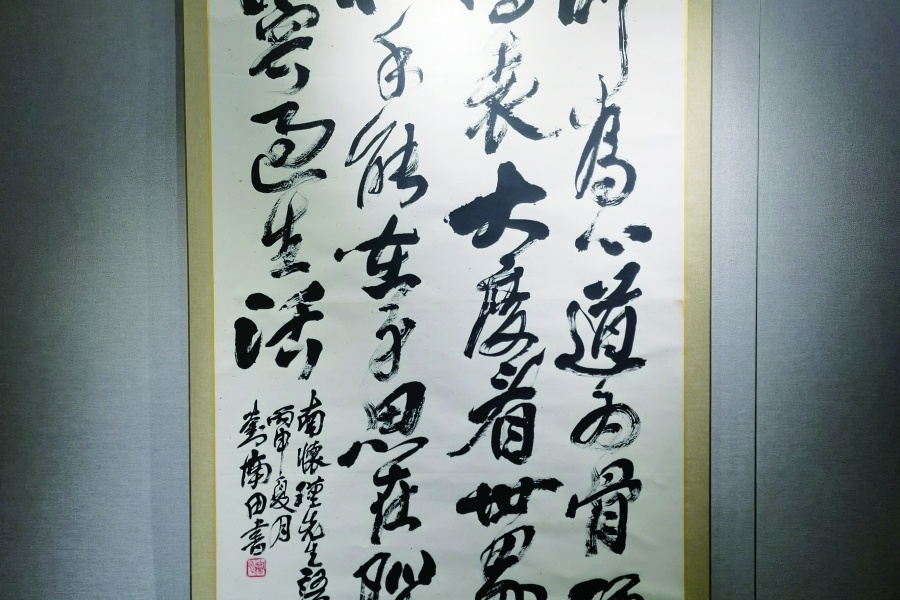 為心道为骨
表大度看世界
手能在身思在脑
容过生活
南懷瑾先生语
丙申夏月
南田书